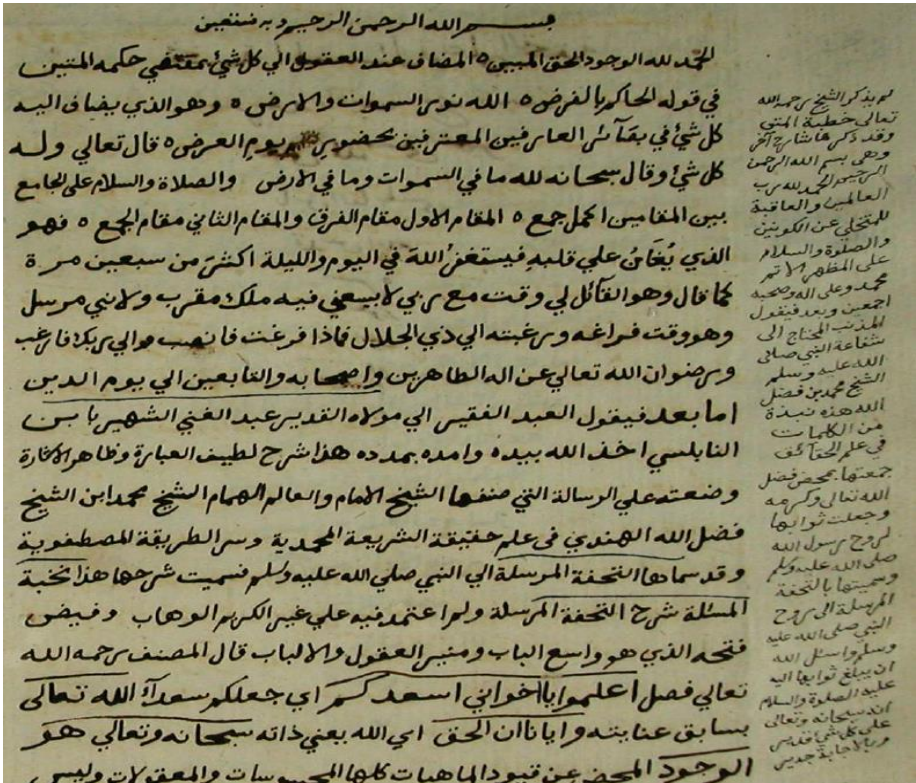 بسم الله الرحمن الرحيم وبه نستعين
الحمد لله الوجود الحق المبين ه المضاف عند العقول الي كل شئ بمقتضي حكمه المتين
في قوله الحاكم بالفرض ه الله نور السموات والارض ه وهو الذي يضاف اليه
كل شئ في بقآئر العارفين المعترفين بحضور يوم العرض ه قال تعالي وله
كل شئ وقال سبحانه لله ما في السموات وما في الارض والصلاة والسلام على الجامع
بين المقامين اكمل جمع ه المقام الاول مقام الفرق والمقام الثاني مقام الجمع ه فهو
الذي يُغَانُ علي قلبه فيستغفرُ اللهَ في اليوم والليلة اكثر من سبعين مرة
كما قال وهو القآئل لي وقت مع ربي لا يسعني فيه ملك مقرب ولا نبي مرسل
وهو وقت فراغه ورغبته الي ذي الجلال فاذا فرغت فانصب والي ربك فارغب
ورضوان الله تعالي عن اله الطاهرين واصحابه والتابعين الي يوم الدين
اما بعد فيقول العبد الفقير الي مولاه القدير عبد الغني الشهير بابن
النابلسي اخذ الله بيده وامده بمدده هذا شرح لطيف العبارة وظاهر الاشارة
وضعته علي الرسالة التي صنفها الشيخ الامام والعالم الهمام الشيخ محمد ابن الشيخ
فضل الله الهندي في علم حقيقة الشريعة المحمدية وسر الطريقة المصطفوية
وقد سماها التحفة المرسلة الي النبي صلي الله عليه وسلم فسميت شرحها هذا نخبة
المسئلة شرح التحفة المرسلة ولم اعتمد فيه علي غير الكريم الوهاب وفيض
فتحه الذي هو واسع الباب ومنير العقول والالباب قال المصنف رحمه الله
تعالي فصل اعلموا يا اخواني اسعدكم اي جعلكم سعدآء الله تعالى
بسابق عنايته وايانا ان الحق اي الله يعني ذاته سبحانه وتعالي هو
الوجود المحض عن قيود الماهيات كلها المحسوسات والمعقولات وليس
لم يذكر الشيخ رحمه الله
تعالى خطبة المتن
وقد ذكرها شارح اخر
وهي بسم الله الرحمن
الرحيم الحمد لله رب
العالمين والعاقبة
للمتخلي عن الكونين
والصلوة والسلام
على المظهر الاتم
محمد وعلى اله وصحبه
اجمعين وبعد فيقول
المذنب المحتاج الى
شفاعة النبي صلى
الله عليه وسلم
الشيخ محمد بن فضل
الله هذه نبذة
من الكلمات
في علم الحقآئق
جمعتها بمحض فضل
الله تعالى وكرمه
وجعلت ثوابها
لروح رسول الله
صلى الله عليه وسلم
وسميتها بالتحفة
المرسلة الى روح
النبي صلى الله عليه
وسلم واسئل الله
ان يبلغ ثوابها اليه
عليه الصلوة والسلام
انه سبحانه وتعالى
على كل شئ قدير
وبالاجابة جدير